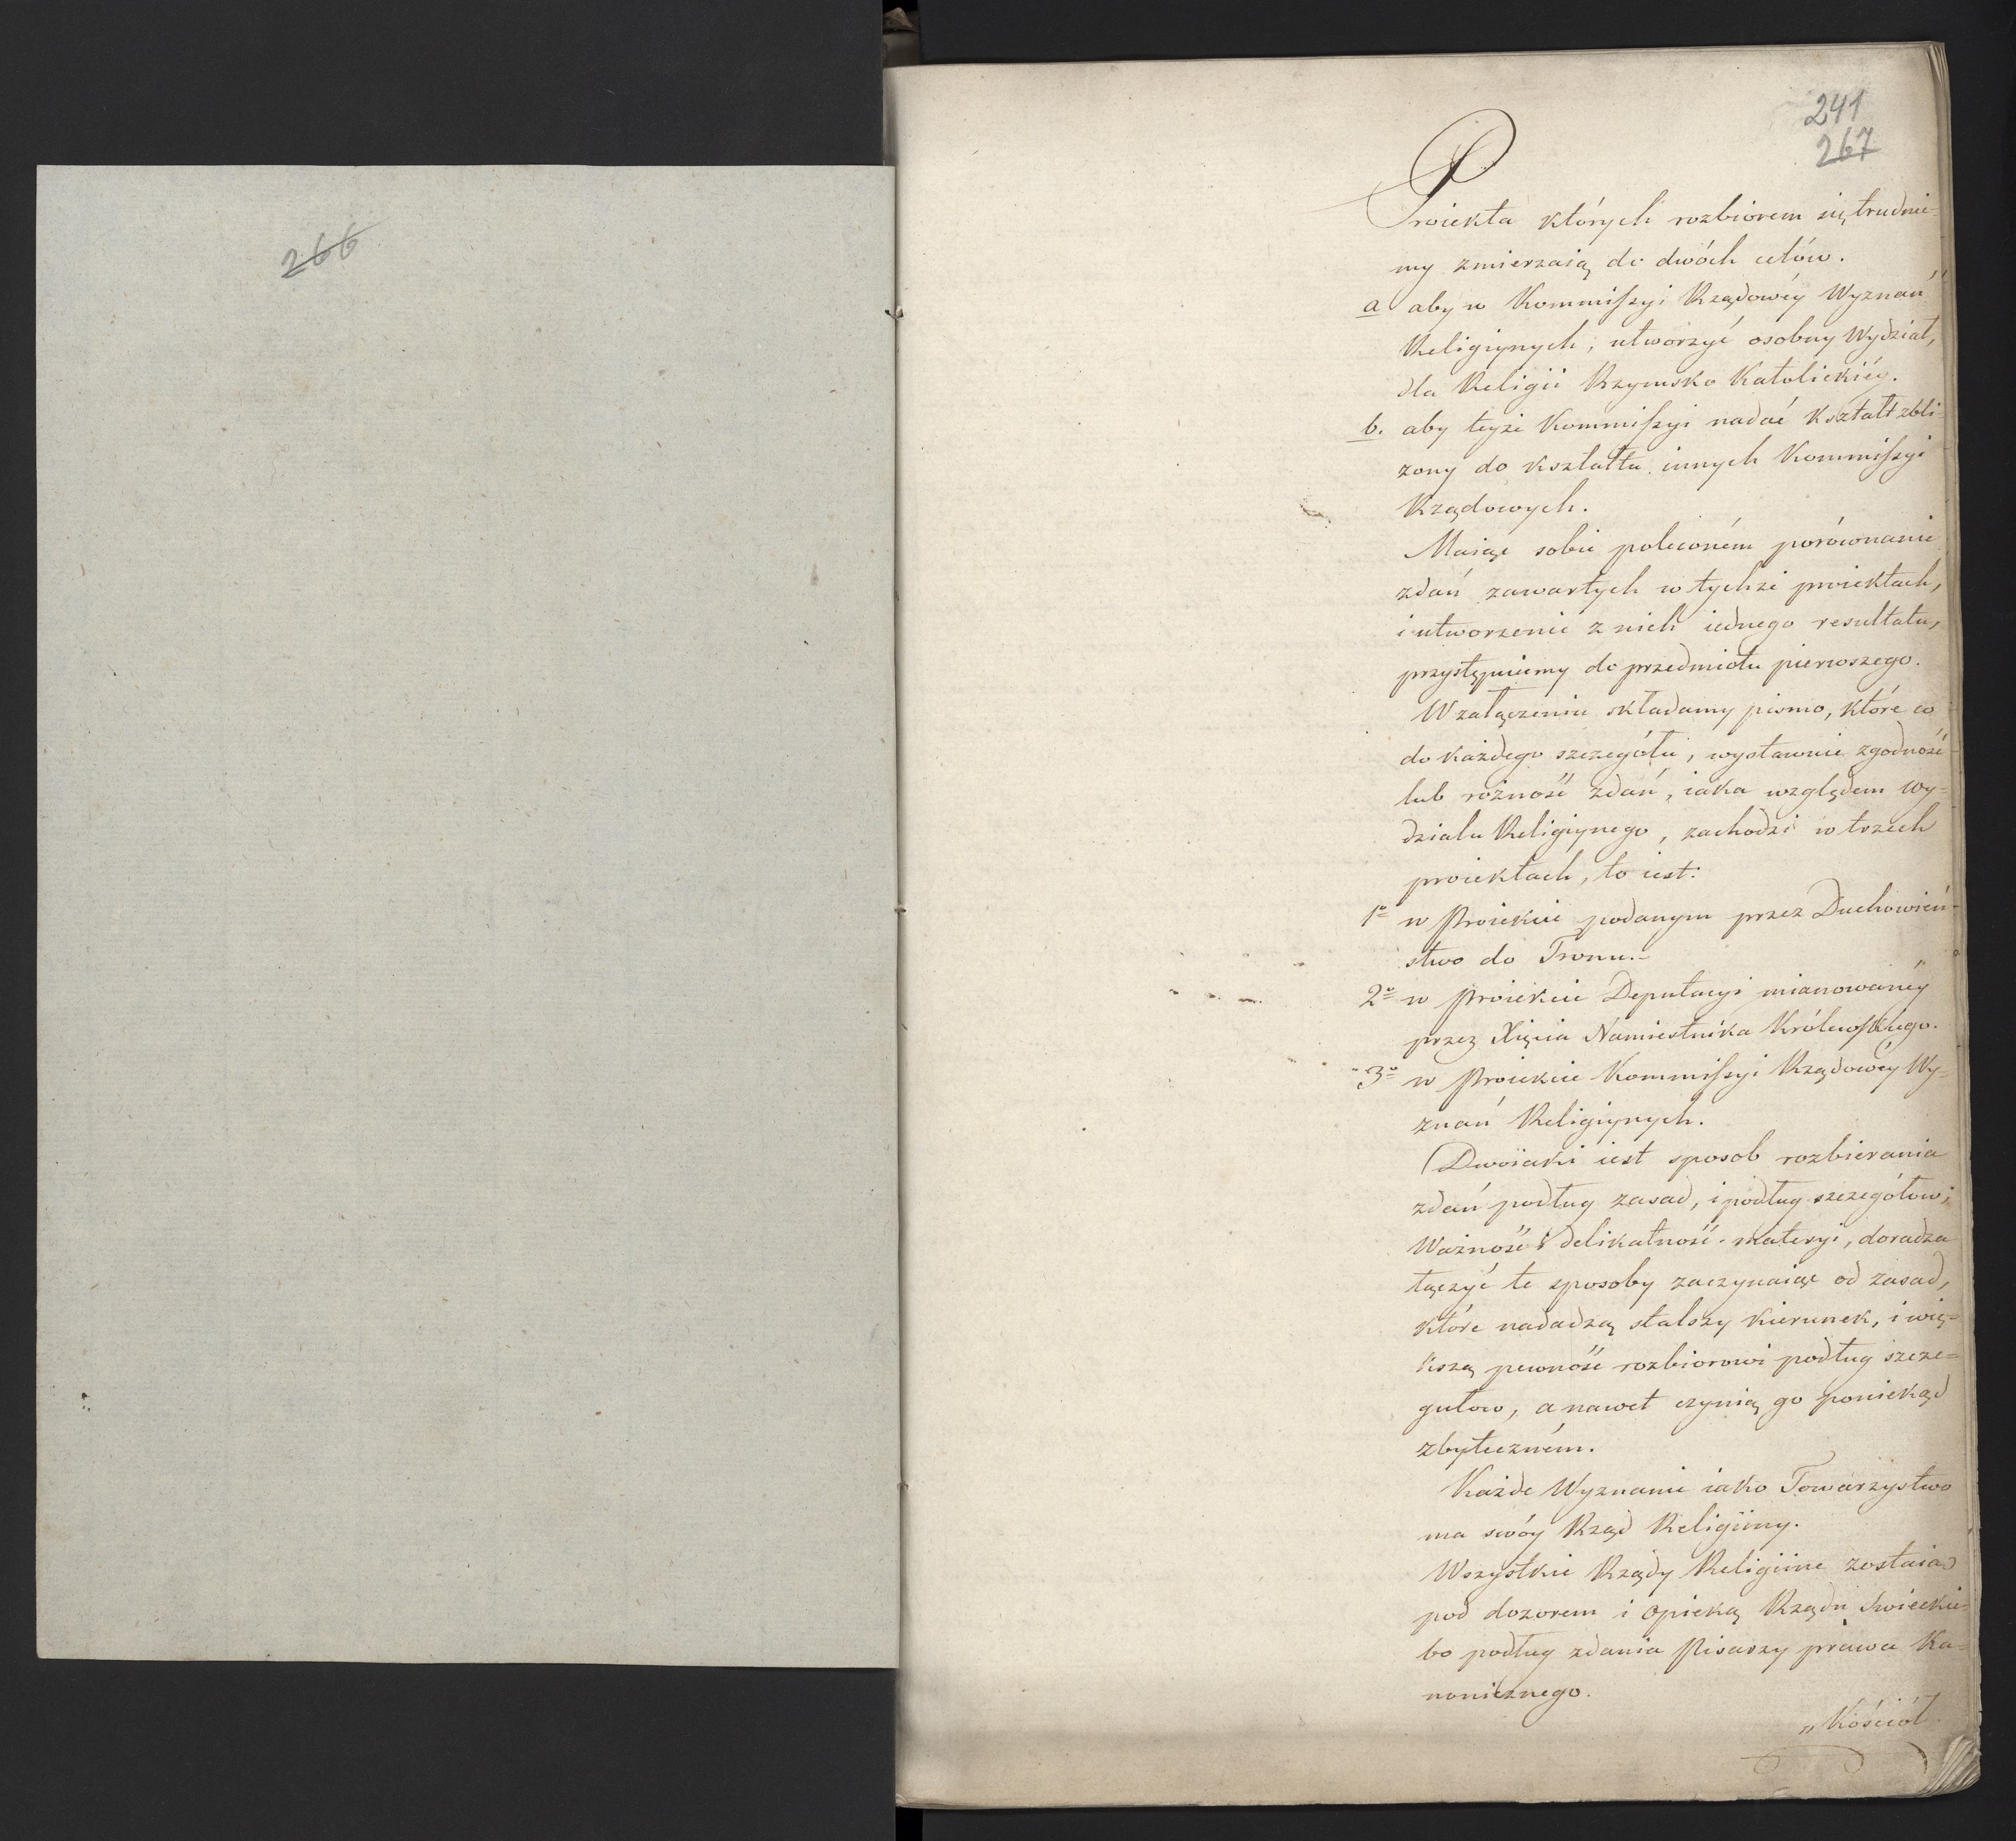 266
241
267
Proiekta których rozbiorem się trudnie-
my zmierzaią do dwóch celów.
a aby w Kommissyi Rządowéy Wyznań
Religiynych, utworzyć osobny Wydział,
dla Religii Rzymsko Katolickiéy.
b. aby teyże Kommissyi nadać Kształt zbli-
żony do kształtu innych Kommissyi
Rządowych.
Maiąc sobie poleconém porównanie
zdań zawartych w tychże proiektach,
i utworzenie z nich iednego resultatu,
przystępuiemy do przedmiotu pierwszego.
W załączeniu składamy pismo, które co
do każdego szczegółu, wystawuie zgodność
lub rożność zdań, iaka względem Wy=
działu Religiynego, zachodzi w trzech
proiektach, to iest:
1o w Proiekcie podanym przez Duchowień-
stwo do Tronu.-
2o w proiekcie Deputacyi mianowanéy
przez Xięcia Namiestnika Królewskiego.
3o w Proiekcie Kommissyi Rządowéy Wy=
znań Religiynych.
Dwoiaki iest sposob rozbierania
zdań podług zasad, i podług szczegółow;
Ważność i delikatność materyi, doradza
łączyć te sposoby zaczynaiąc od zasad,
które nadadzą stalszy kierunek, i wię=
kszą pewność rozbiorowi podług szcze=
gułow, a nawet czynią go poniekąd
zbyteczném.
Każde Wyznanie iako Towarzystwo
ma swóy Rząd Religiiny.
Wszystkie Rządy Religiine zostaią
pod dozorem i opieką Rządu Swieckie=
bo podług zdania Pisarzy prawa Ka=
nonicznego.
„Kościół